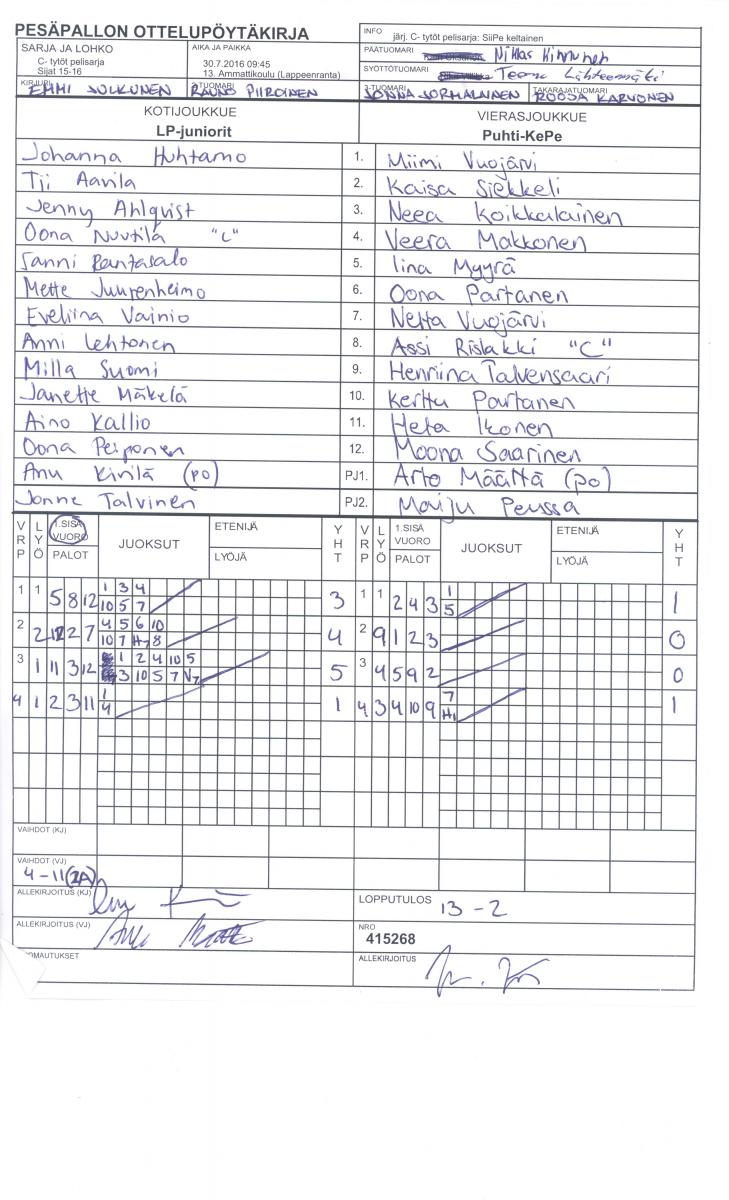 PESÄPALLON OTTELUPÖYTÄKIRJA
INFO järj. C- tytöt pelisarja: SiiPe keltainen
SARJA JA LOHKO
C- tytöt pelisarja
Sijat 15-16
AIKA JA PAIKKA
30.7.2016 09:45
13. Ammattikoulu (Lappeenranta)
PÄÄTUOMARI Niklas Kinnunen
SYÖTTÖTUOMARI Teemu Lähteenmäki
KIRJURI EMMI JULKUNEN
2-TUOMARI RAUNO PIIROINEN
3-TUOMARI JONNA JORMALAINEN
TAKARAJATUOMARI ROOSA KARVONEN
KOTIJOUKKUE
LP-juniorit
VIERASJOUKKUE
Puhti-KePe
Johanna Huhtamo 1. Miimi Vuojärvi
Tii Aavila 2. Kaisa Siekkeli
Jenny Ahlqvist 3. Neea Koikkalainen
Oona Nuutila "C" 4. Veera Makkonen
Sanni Rantasalo 5. Iina Myyrä
Mette Juurenheimo 6. Oona Partanen
Eveliina Vainio 7. Netta Vuojärvi
Anni Lehtonen 8. Assi Rislakki "C"
Milla Suomi 9. Henriina Talvensaari
Janette Mäkelä 10. Kerttu Partanen
Aino Kallio 11. Heta Ikonen
Oona Peiponen 12. Moona Saarinen
Anu Kivilä (po) PJ1. Arto Määttä (po)
Jonne Talvinen PJ2. Maiju Peussa
VRP LYÖ 1.SISÄ VUORO PALOT JUOKSUT ETENIJÄ LYÖJÄ YHT VRP LYÖ 1.SISÄ VUORO PALOT JUOKSUT ETENIJÄ LYÖJÄ YHT
1 1 5 8 12 1 3 4 3 1 1 2 4 3 1 1
10 5 7 5
2 2 12 2 7 4 5 6 10 4 2 9 1 2 3 0
10 7 H7 8
3 1 11 3 12 1 2 4 10 5 5 3 4 5 9 2 0
3 10 5 7 N7
4 1 2 3 11 1 1 4 3 4 10 9 7 1
4 H1
VAIHDOT (KJ)
VAIHDOT (VJ)
4-11(2A)
ALLEKIRJOITUS (KJ)
LOPPUTULOS 13-2
ALLEKIRJOITUS (VJ)
NRO
415268
OMAUTUKSET
ALLEKIRJOITUS